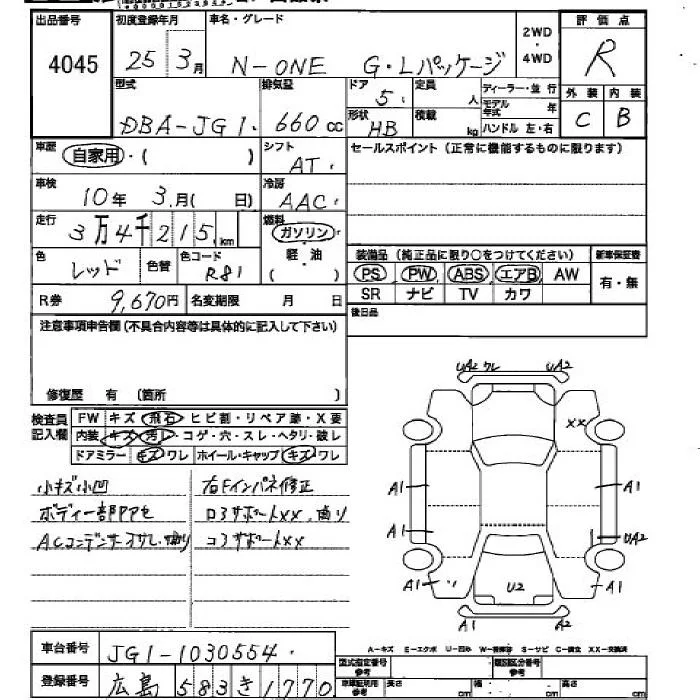 出品番号
4045
初度登録年月
25年 3月
車名・グレード
N-ONE G・Lパッケージ
2WD
・
4WD
評価点
R
型式
DBA-JG1
排気量
660 cc
ドア
5
形状
HB
定員
人
積載
kg
ディーラー・並行
モデル年式 年
ハンドル 左・右
外装 内装
C B
車歴
自家用・( )
シフト
AT
セールスポイント(正常に機能するものに限ります)
車検
10年 3月( 日)
冷房
AAC
走行
3万4千215km
燃料
ガソリン
軽・油
( )
色
レッド
色替
色コード
R81
装備品(純正品に限り○をつけてください) 新車保証書
PS PW ABS エアB AW 有・無
SR ナビ TV カワ
R券 9,670円 名変期限 月 日
後日品
注意事項申告欄(不具合内容等は具体的に記入して下さい)
修復歴 有(箇所 )
検査員
記入欄
FW キズ・飛石・ヒビ割・リペア跡・X要
内装 キズ・汚レ・コゲ・穴・スレ・ヘタリ・破レ
ドアミラー キズ・ワレ ホイール・キャップ キズ・ワレ
小キズ小凹
ボディー部アアセ
ACコンデンサーオサレ・曲り
右Fインパネ修正
ロアサポートXX、曲り
コアサポートXX
UA2 ワレ UA2
XX
A1 A1
A1 UA2
A1 U2 A1
A1 A2
A-キズ E-エクボ U-凹み W-補修跡 S-サビ C-腐食 XX-交換済
車台番号 JG1-1030554
登録番号 広島 583 き 1770
型式指定番号
参考
類別区分番号
参考
車庫証明用
参考
長さ cm 幅 cm 高さ cm